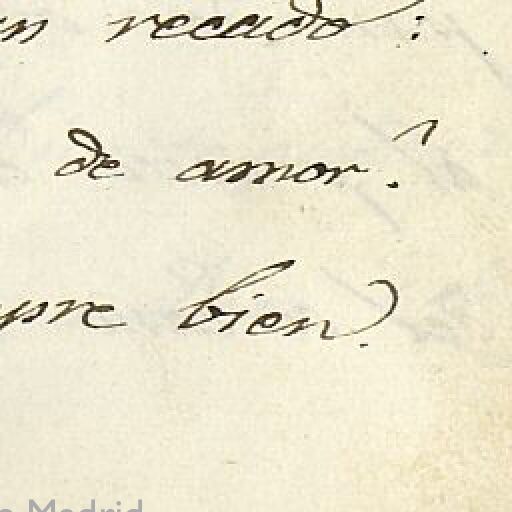 un recado:
de amor?
pre bien?
Madrid